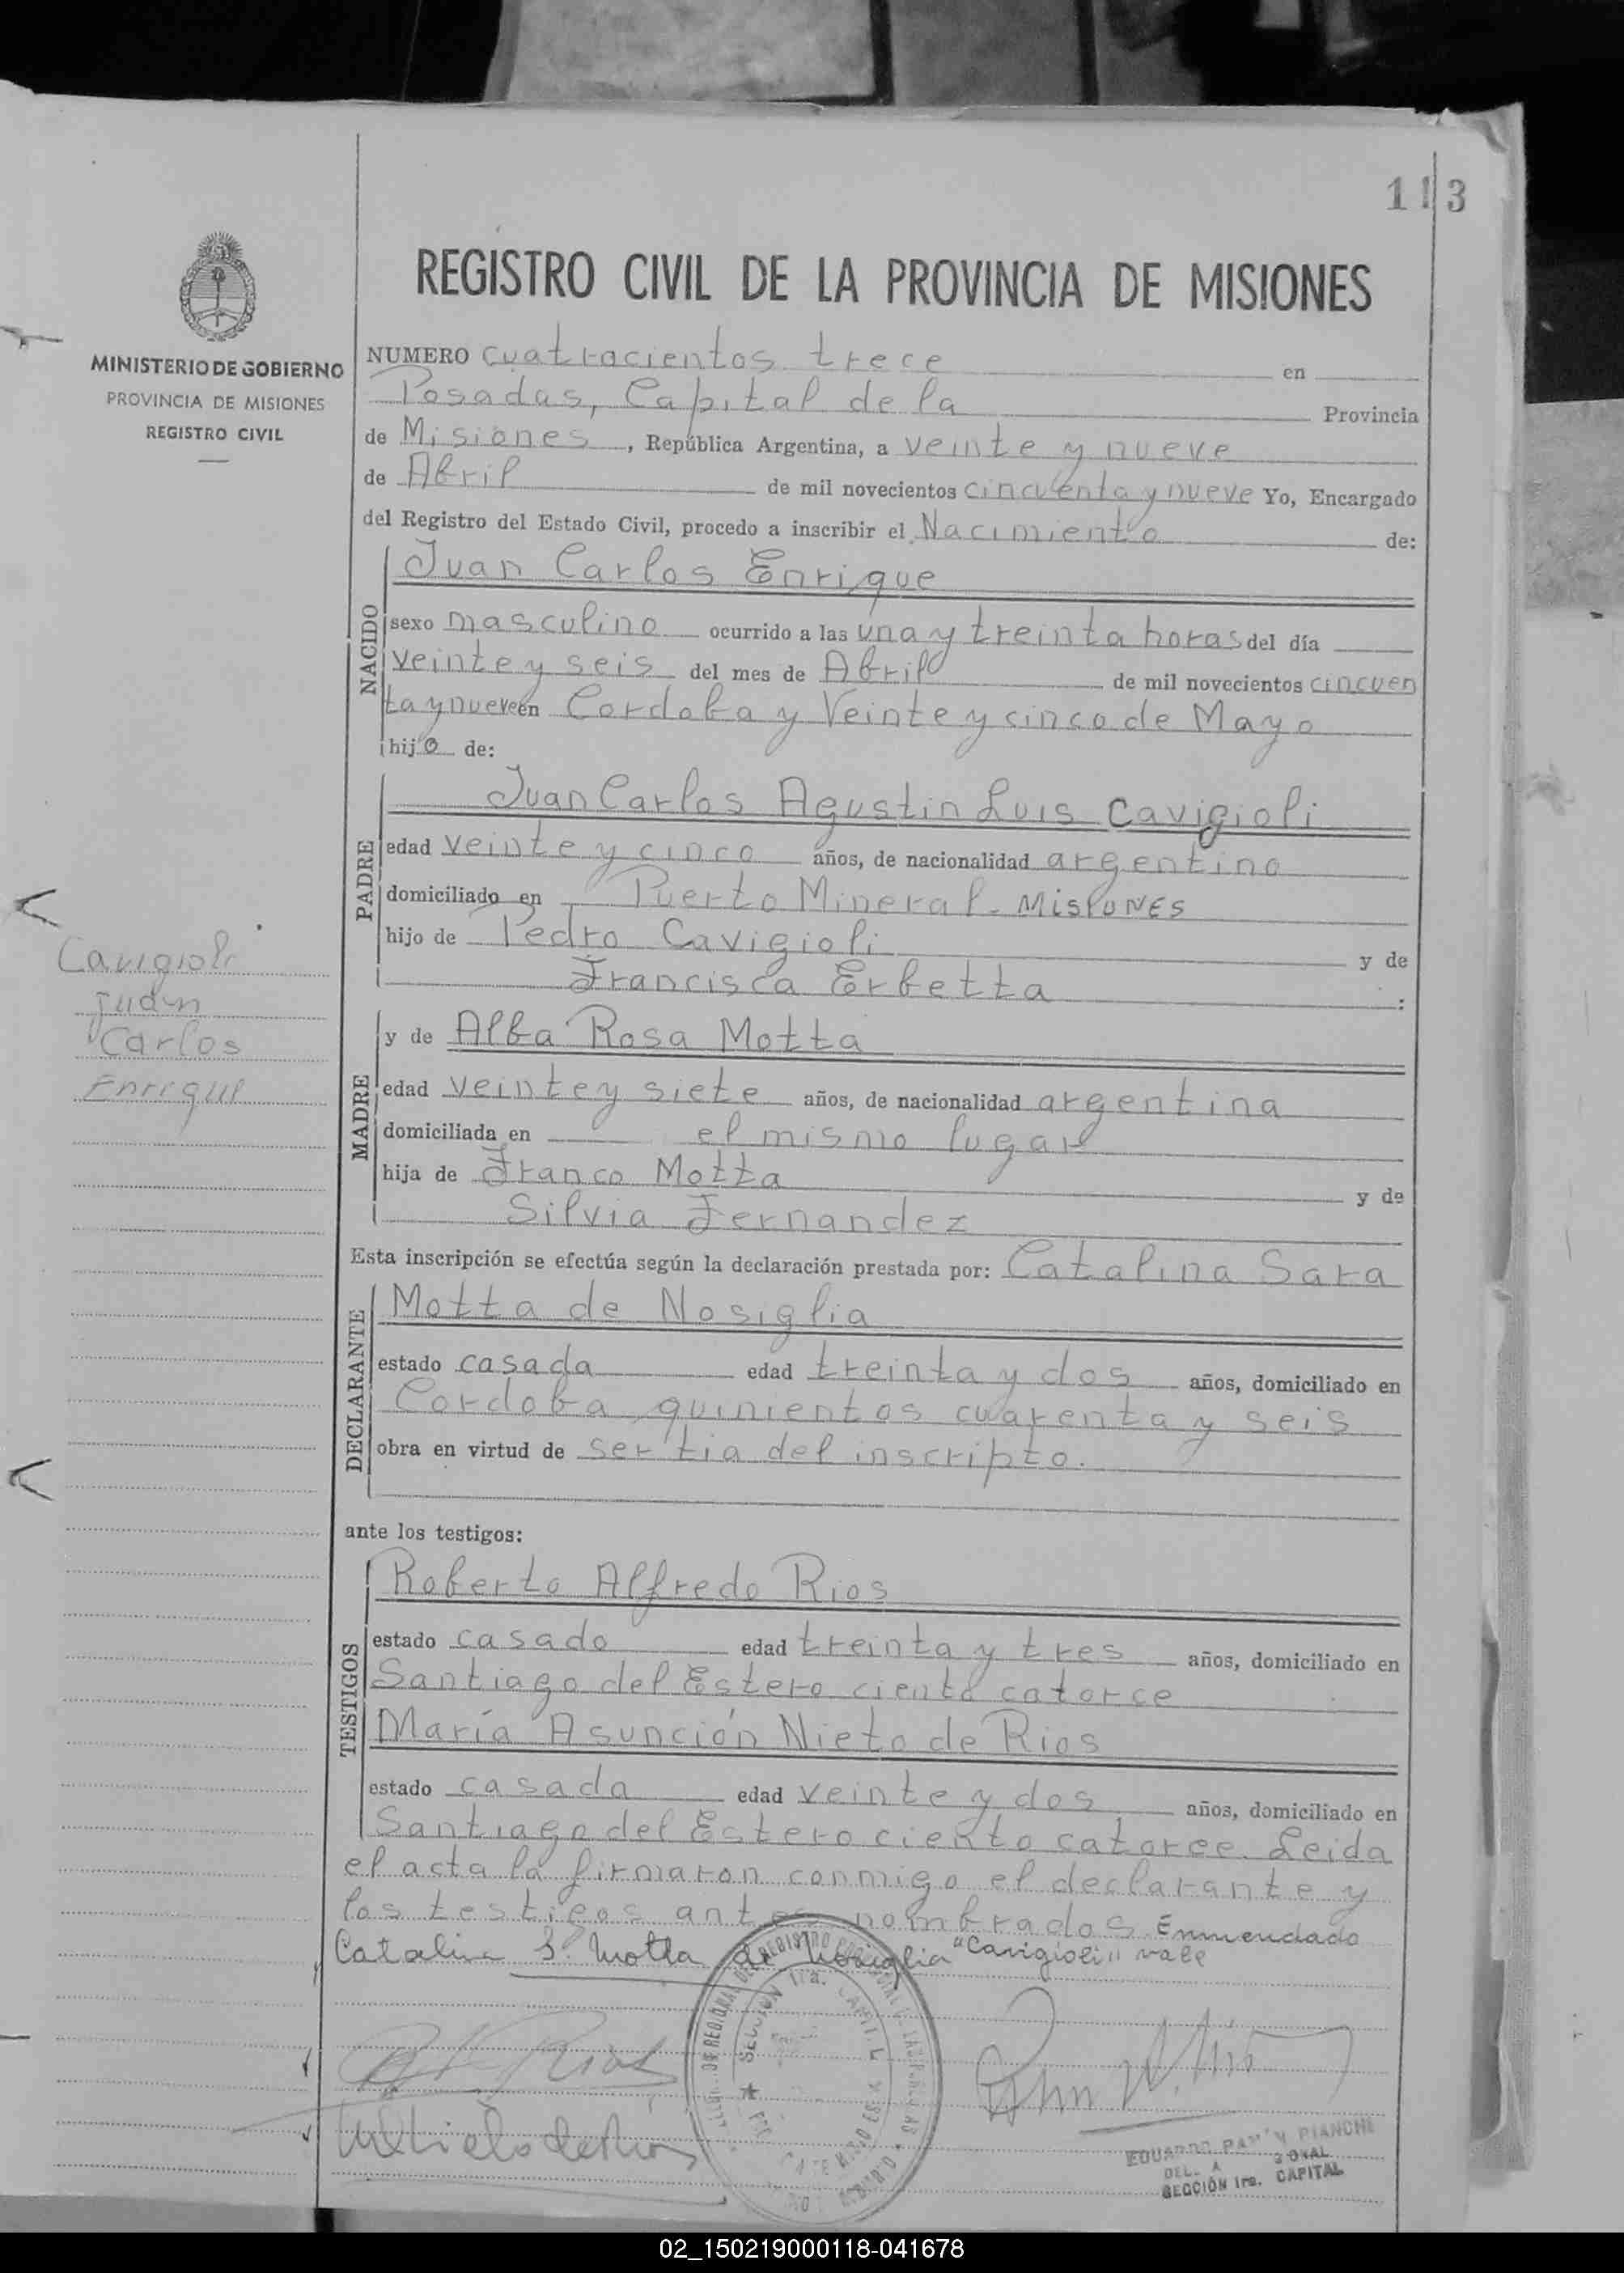 113
REGISTRO CIVIL DE LA PROVINCIA DE MISIONES
MINISTERIO DE GOBIERNO
PROVINCIA DE MISIONES
REGISTRO CIVIL
NUMERO cuatrocientos trece en
Posadas, Capital de la Provincia
de Misiones, República Argentina, a veinte y nueve
de Abril de mil novecientos cincuenta y nueve Yo, Encargado
del Registro del Estado Civil, procedo a inscribir el Nacimiento de:
NACIDO
Juan Carlos Enrique
sexo masculino ocurrido a las una y treinta horas del día
veinte y seis del mes de Abril de mil novecientos cincuen
ta y nueve en Cordoba y Veinte y cinco de Mayo
hijo de:
PADRE
Juan Carlos Agustin Luis Cavigioli
edad veinte y cinco años, de nacionalidad argentino
domiciliado en Puerto Mineral - MISIONES
hijo de Pedro Cavigioli y de
Francisca Erbetta :
Cavigioli
Juan
Carlos
Enrique
MADRE
y de Alba Rosa Motta
edad veinte y siete años, de nacionalidad argentina
domiciliada en el mismo lugar
hija de Franco Motta y de
Silvia Fernandez
Esta inscripción se efectúa según la declaración prestada por: Catalina Sara
DECLARANTE
Motta de Nosiglia
estado casada edad treinta y dos años, domiciliado en
Cordoba quinientos cuarenta y seis
obra en virtud de ser tia del inscripto.
ante los testigos:
TESTIGOS
Roberto Alfredo Rios
estado casado edad treinta y tres años, domiciliado en
Santiago del Estero ciento catorce
María Asunción Nieto de Rios
estado casada edad veinte y dos años, domiciliado en
Santiago del Estero ciento catorce. Leida
el acta la firmaron conmigo el declarante y
los testigos antes nombrados. Enmendado
Catalina S. Motta de Nosiglia "Cavigioli" vale
SECCIÓN 1ra. CAPITAL
02_150219000118-041678